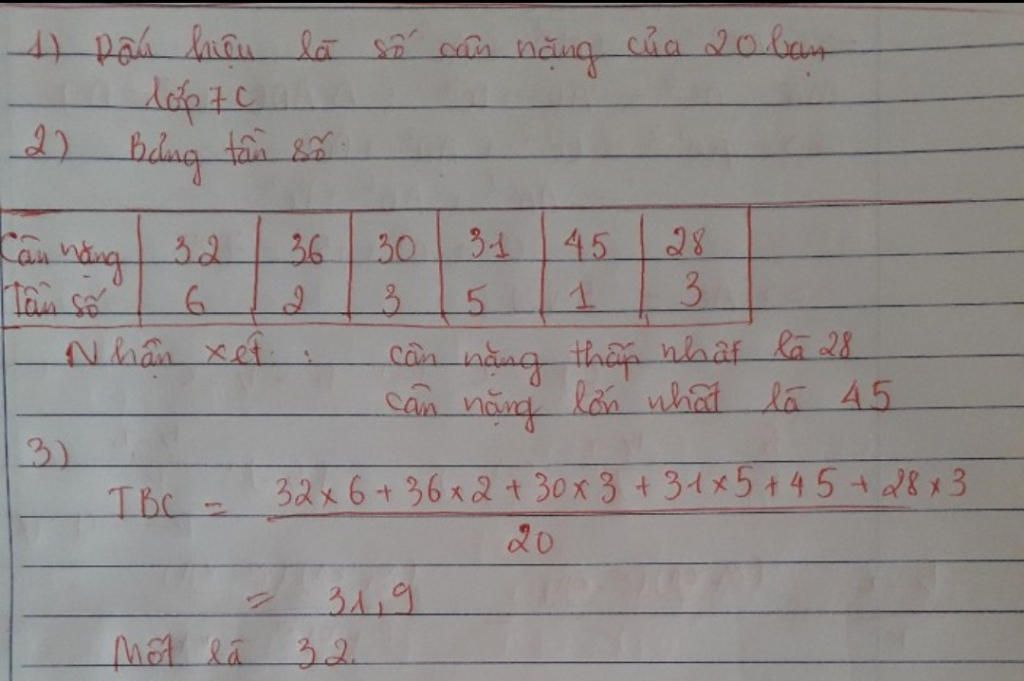 1) Dấu hiệu là số cân nặng của 20 bạn
lớp 7C
2) Bảng tần số
Cân nặng 32 36 30 31 45 28
Tần số 6 2 3 5 1 3
Nhận xét : cân nặng thấp nhất là 28
cân nặng lớn nhất là 45
3)
TBC = 32 x 6 + 36 x 2 + 30 x 3 + 31 x 5 + 45 + 28 x 3
20
= 31,9
Mốt là 32.